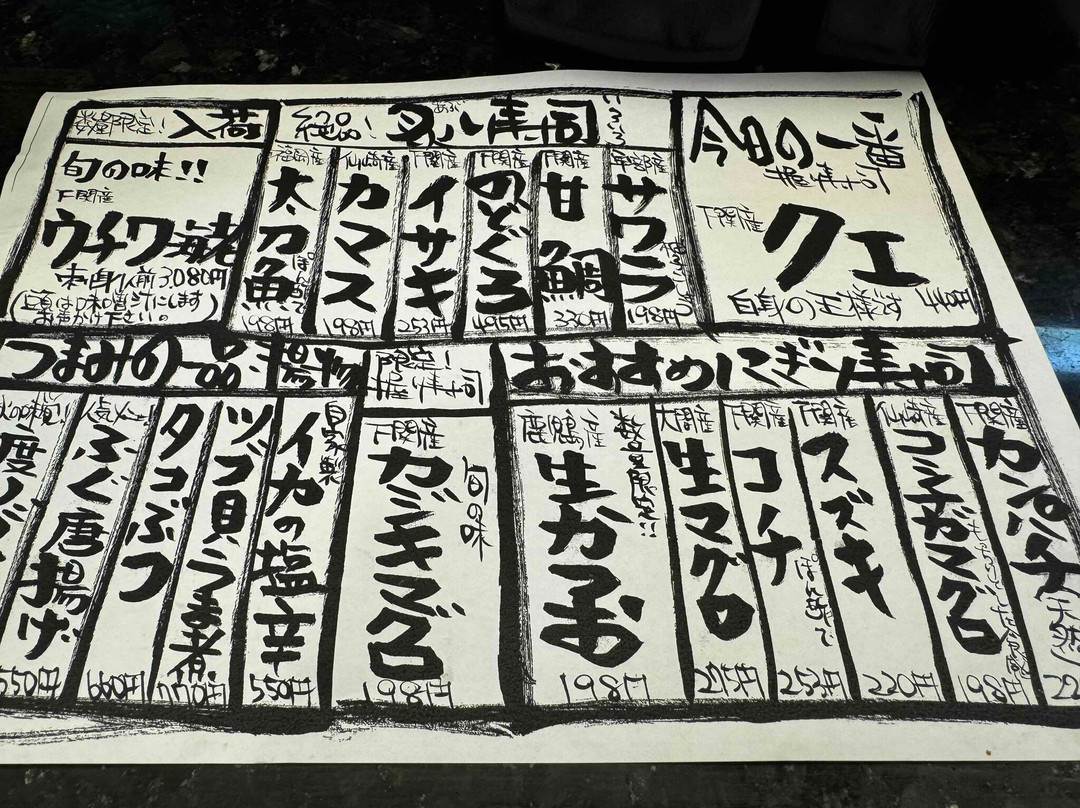 数量限定! 入荷
旬の味!!
下関産
ウチワ海老
刺身1人前 3,080円
(頭は味噌汁にします)
お声かけ下さい。
絶品! 炙り寿司 いろいろ
あぶ
福岡産
太刀魚
ぽん酢で
198円
仙崎産
カマス
198円
下関産
イサキ
253円
下関産
のどぐろ
495円
下関産
甘鯛
330円
サワラ
198円
今日の一番
握り寿司
下関産
クエ
白身の王様です
つまみの一品・揚物
550円
ふぐ唐揚げ
660円
タコぶつ
ツブ貝うま煮
770円
自家製
イカの塩辛
550円
限定!
握り寿司
下関産
旬の味
カジキマグロ
198円
おすすめにぎり寿司
数量限定!!
生かつお
198円
生マグロ
275円
下関産
コチ
253円
下関産
スズキ
220円
仙崎産
コシナガマグロ
198円
下関産
カンパチ
(天然)